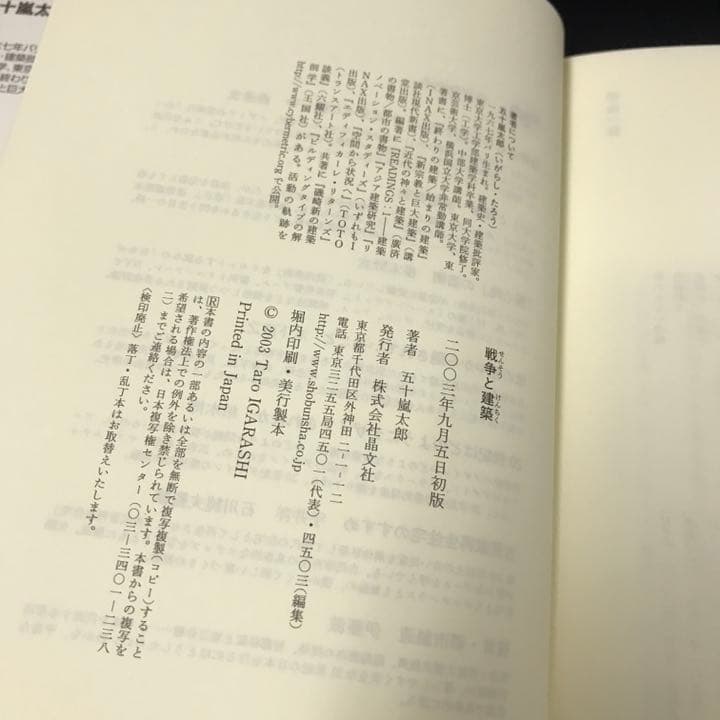 著者について
五十嵐太郎(いがらし・たろう)
一九六七年パリ生まれ。建築史・建築批評家。
東京大学工学部建築学科卒業、同大学院修了。
博士(工学)。中部大学講師。東京大学、東
京芸術大学、横浜国立大学非常勤講師。
著書に、『終わりの建築/始まりの建築』
(INAX出版)、『新宗教と巨大建築』(講
談社現代新書)、『近代の神々と建築』(廣済
堂出版)、編著に『READINGS:1──建築
の書物/都市の書物』『アジア建築研究』『リ
ノベーション・スタディーズ』(いずれもI
NAX出版)、『空間から状況へ』(TOTO
出版)、『エディフィカーレ・リターンズ』
(トランスアート社)、共著に『磯崎新の建築
談義』(六耀社)、『ビルディングタイプの解
剖学』(王国社)がある。活動の軌跡を
http://www.cybermetric.orgで公開。
せんそう けんちく
戦争と建築
二〇〇三年九月五日初版
著者 五十嵐太郎
発行者 株式会社晶文社
東京都千代田区外神田二-一-一二
電話 東京三二五五局四五〇一(代表)・四五〇三(編集)
http://www.shobunsha.co.jp
堀内印刷・美行製本
© 2003 Taro IGARASHI
Printed in Japan
Ⓡ本書の内容の一部あるいは全部を無断で複写複製(コピー)すること
は、著作権法上での例外を除き禁じられています。本書からの複写を
希望される場合は、日本複写権センター(〇三―三四〇一―二三八
二)までご連絡ください。
〈検印廃止〉落丁・乱丁本はお取替えいたします。
十嵐太